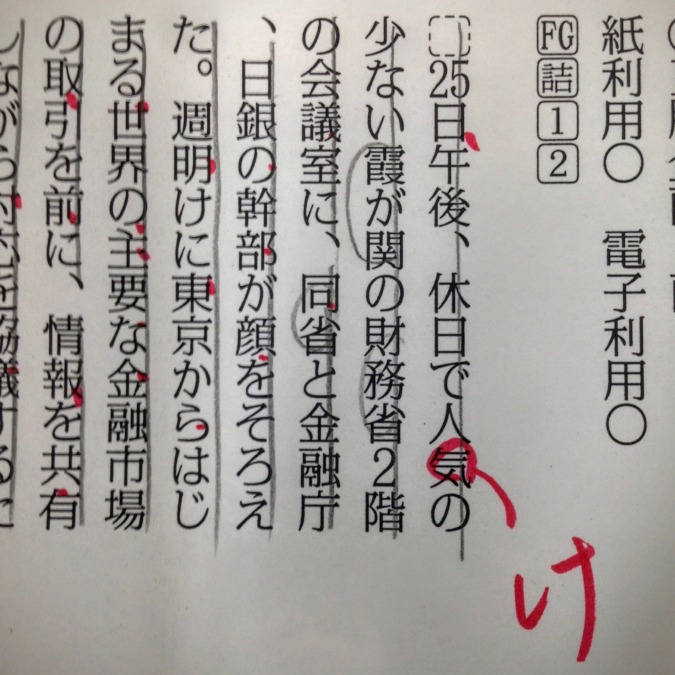 紙利用○　電子利用○
FG詰12
25日午後、休日で人気の
少ない霞が関の財務省2階
の会議室に、同省と金融庁
、日銀の幹部が顔をそろえ
た。週明けに東京からはじ
まる世界の主要な金融市場
の取引を前に、情報を共有
しながら対応を協議するた
け